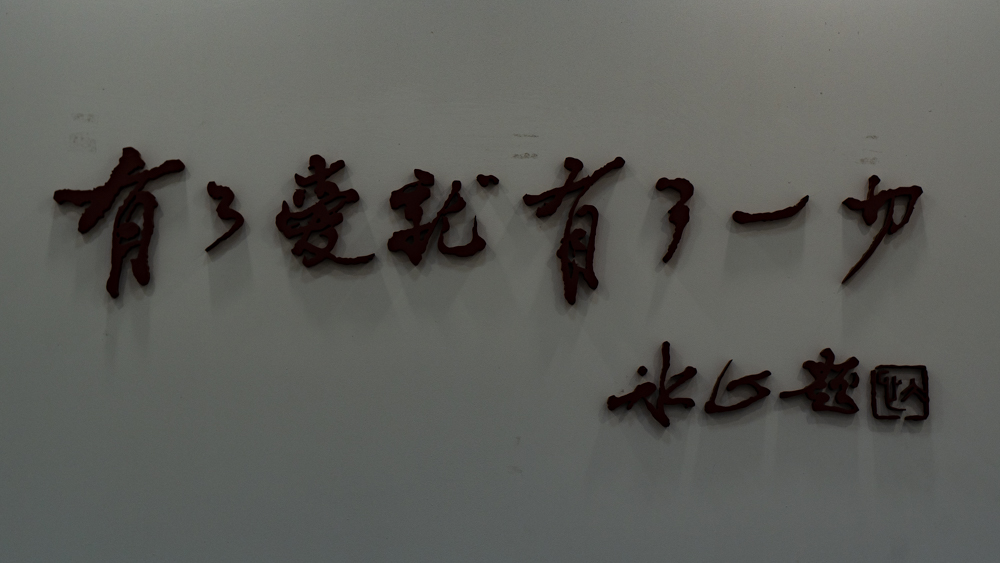 有了爱就有了一切
冰心题